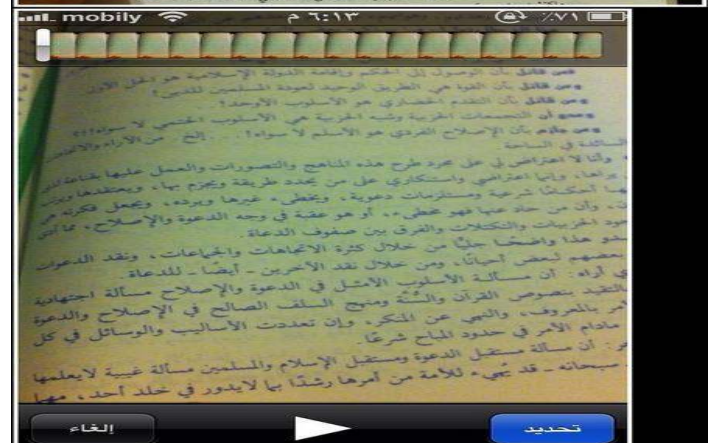 mobily ٦:١٣ م ٪٧١
فمن قائل بأن الوصول إلى الحكم وإقامة الدولة الإسلامية هو الحل الأول
ومن قائل بأن القوة هي الطريق الوحيد لعودة المسلمين للدين!
ومن قائل بأن التقدم الحضاري هو الأسلوب الأوحد!
أن التجمعات الحزبية وشبه الحزبية هي الأسلوب الحتمي لا سواه!!؟
بأن الإصلاح الفردي هو الأسلم لا سواه! إلخ. من الآراء
السائدة في الساحة
وأنا لا اعتراض لي على مجرد طرح هذه المناهج والتصورات والعمل عليها
يراها، وإنما اعتراضي واستنكاري على من يحدد طريقة ويجزم بها، ويعتقدها
أحكامًا شرعية ومستلزمات دعوية، ويخطىء غيرها ويرده، ويجعل فكرته هي
وأن من حاد عنها فهو مخطىء، أو هو عقبة في وجه الدعوة والإصلاح، مما
الحزبيات والتكتلات والفرق بين صفوف الدعاة.
هذا واضحًا جليًّا من خلال كثرة الاتجاهات والجماعات، ونقد الدعوات
بعضهم لبعض أحيانًا، ومن خلال نقد الآخرين - أيضا - للدعاة.
أراه: أن مسألة الأسلوب الأمثل في الدعوة والإصلاح مسألة اجتهادية
التقيد بنصوص القرآن والسُّنَّة ومنهج السلف الصالح في الإصلاح والدعوة
بالمعروف، والنهي عن المنكر، وإن تعددت الأساليب والوسائل في كل
مادام الأمر في حدود المباح شرعًا.
أن مسألة مستقبل الدعوة ومستقبل الإسلام والمسلمين مسألة غيبية لايعلمها
سبحانه - قد تجيء للأمة من أمرها رشدًا بما لايدور في خلد أحد، مهما
إلغاء تحديد